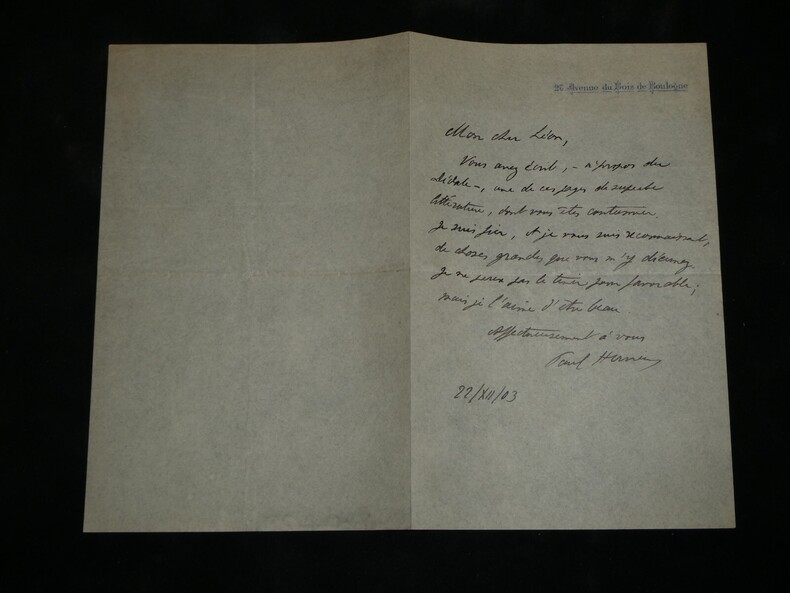 23 Avenue du Bois de Boulogne
Mon cher Léon,
Vous avez écrit, - à propos du
Dédale -, une de ces pages de superbe
littérature, dont vous êtes coutumier.
Je suis fier, et je vous suis reconnaissant,
de choses grandes que vous m'y décernez.
Je ne serai pas le tenir pour favorable;
mais je l'aime d'être beau.
Affectueusement à vous
Paul Hervieu
22/XII/03